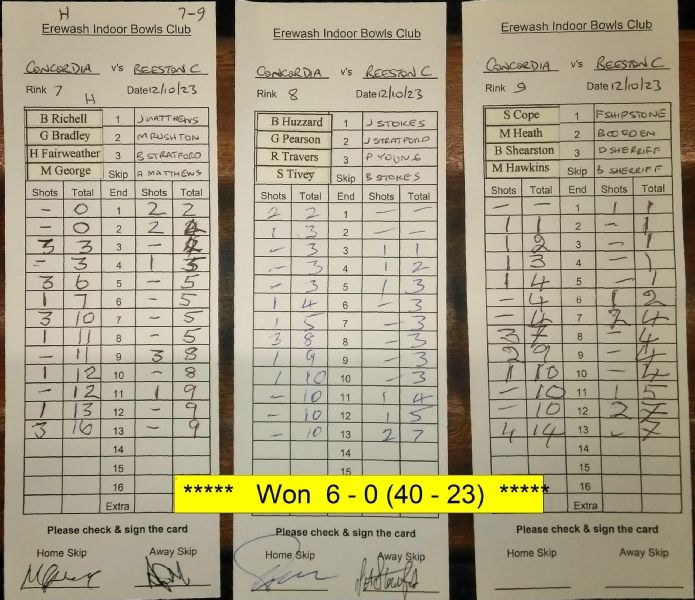 H 7-9
Erewash Indoor Bowls Club
CONCORDIA v's BEESTON C
Rink 7 Date 12/10/23
H
B Richell 1 J MATTHEWS
G Bradley 2 M RUSHTON
H Fairweather 3 B STRATFORD
M George Skip A MATTHEWS
Shots Total End Shots Total
- 0 1 2 2
- 0 2 2 4
3 3 3 - 4
- 3 4 1 5
3 6 5 - 5
1 7 6 - 5
3 10 7 - 5
1 11 8 - 5
- 11 9 3 8
1 12 10 - 8
- 12 11 1 9
1 13 12 - 9
3 16 13 - 9
14
15
16
Extra
Please check & sign the card
Home Skip Away Skip
Erewash Indoor Bowls Club
CONCORDIA v's BEESTON C
Rink 8 Date 12/10/23
B Huzzard 1 J STOKES
G Pearson 2 J STRATFORD
R Travers 3 P YOUNG
S Tivey Skip B STOKES
Shots Total End Shots Total
2 2 1 - -
1 3 2 - -
- 3 3 1 1
- 3 4 1 2
- 3 5 1 3
1 4 6 - 3
1 5 7 - 3
3 8 8 - 3
1 9 9 - 3
1 10 10 - 3
- 10 11 1 4
- 10 12 1 5
- 10 13 2 7
14
15
Please check & sign the card
Home Skip Away Skip
Erewash Indoor Bowls Club
CONCORDIA v's BEESTON C
Rink 9 Date 12/10/23
S Cope 1 F SHIPSTONE
M Heath 2
B Shearston 3 D SHERRIFF
M Hawkins Skip B SHERRIFF
Shots Total End Shots Total
- - 1 1 1
1 1 2 - 1
1 2 3 - 1
1 3 4 - 1
1 4 5 - 1
- 4 6 1 2
- 4 7 2 4
3 7 8 - 4
2 9 9 - 4
1 10 10 - 4
- 10 11 1 5
- 10 12 2 7
4 14 13 - 7
14
15
16
Extra
Please check & sign the card
Home Skip Away Skip
***** Won 6 - 0 (40 - 23) *****